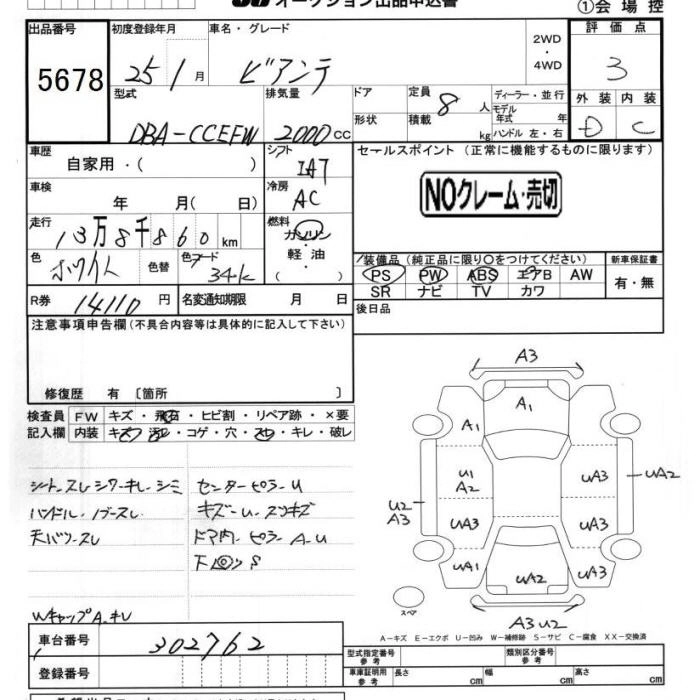 オークション出品申込書
①会場控
出品番号 初度登録年月 車名・グレード 2WD・4WD 評価点
5678 25 1月 ビアンテ 3
型式 排気量 ドア 定員 8 人 ディーラー・並行 外装 内装
モデル年式 年
DBA-CCEFW 2000 cc 形状 積載 kg ハンドル 左・右 D C
車歴 シフト セールスポイント (正常に機能するものに限ります)
自家用・( ) IAT
車検 冷房 NOクレーム・売切
年 月( 日) AC
走行 燃料
13万8千860km ガソリン
色 色替 色コード 軽油 装備品 (純正品に限り○をつけてください) 新車保証書
ホワイト 34K ( ) PS PW ABS エアB AW 有・無
SR ナビ TV カワ
R券 14110円 名変通知期限 月 日 後日品
注意事項申告欄(不具合内容等は具体的に記入して下さい)
修復歴 有 〔箇所 〕
検査員 FW キズ・飛石・ヒビ割・リペア跡・×要
記入欄 内装 キズ 汚レ・コゲ・穴・スレ・キレ・破レ
シートスレ シワ キレ シミ センターピラーU
ハンドル・ノブスレ キズ-U
天バリスレ ドア内ピラー A-U
下回り S
Wキャップ A キレ
A3
A1
A1
U1 A2 UA3 UA2
U2 A3
UA3 UA3
UA1 UA3
UA2
スペア A3 U2
A-キズ E-エクボ U-凹み W-補修跡 S-サビ C-腐食 XX-交換済
車台番号 302762
型式指定番号 参考 類別区分番号 参考
登録番号 車庫証明用 参考 長さ cm 幅 cm 高さ cm